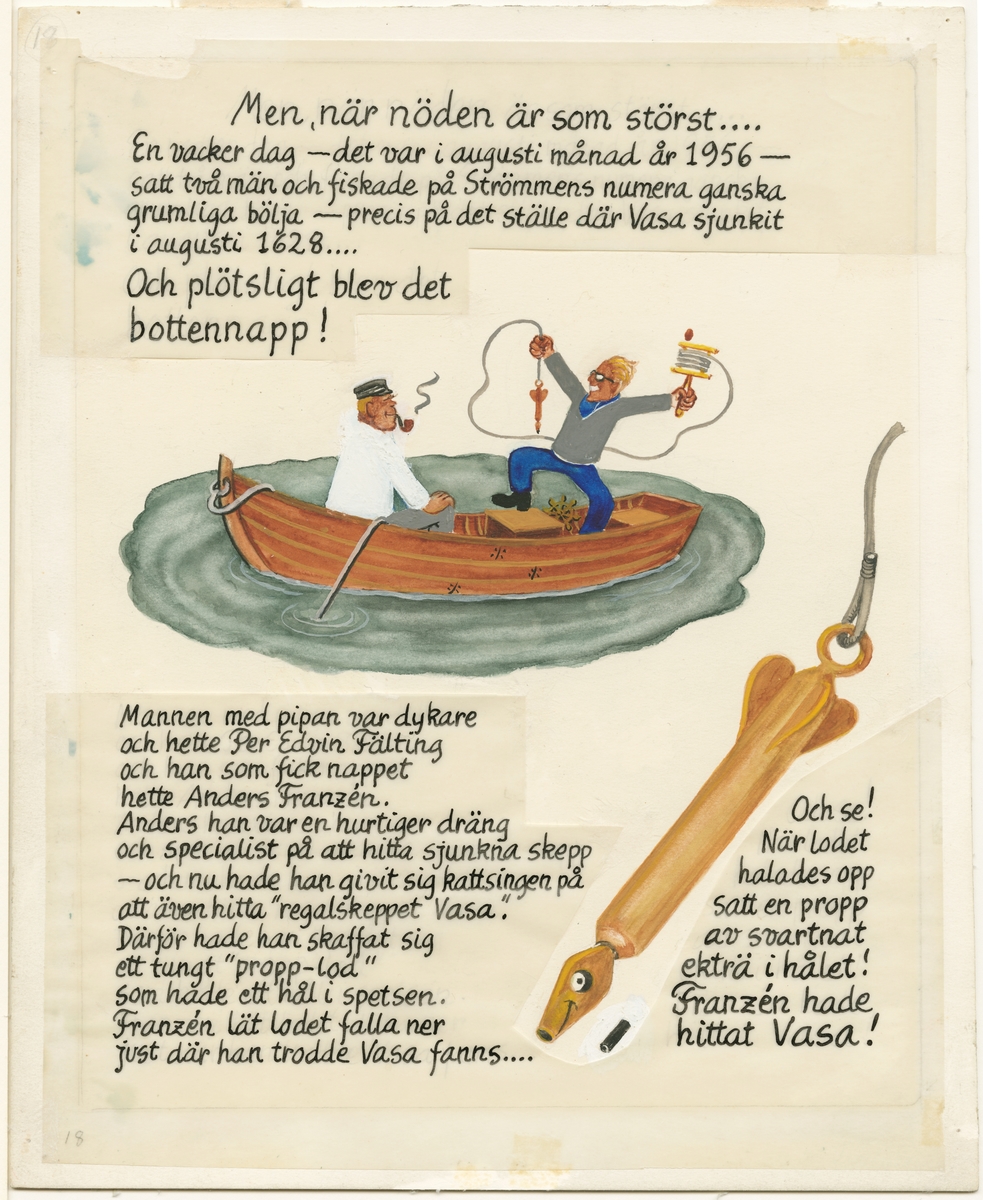 18
Men, när nöden är som störst....
En vacker dag – det var i augusti månad år 1956 –
satt två män och fiskade på Strömmens numera ganska
grumliga bölja – precis på det ställe där Vasa sjunkit
i augusti 1628....
Och plötsligt blev det
bottennapp!
Mannen med pipan var dykare
och hette Per Edvin Fälting
och han som fick nappet
hette Anders Franzén.
Anders han var en hurtiger dräng
och specialist på att hitta sjunkna skepp
– och nu hade han givit sig kattsingen på
att även hitta "regalskeppet Vasa".
Därför hade han skaffat sig
ett tungt "propp-lod"
som hade ett hål i spetsen.
Franzén lät lodet falla ner
just där han trodde Vasa fanns....
Och se!
När lodet
halades opp
satt en propp
av svartnat
ekträ i hålet!
Franzén hade
hittat Vasa!
18